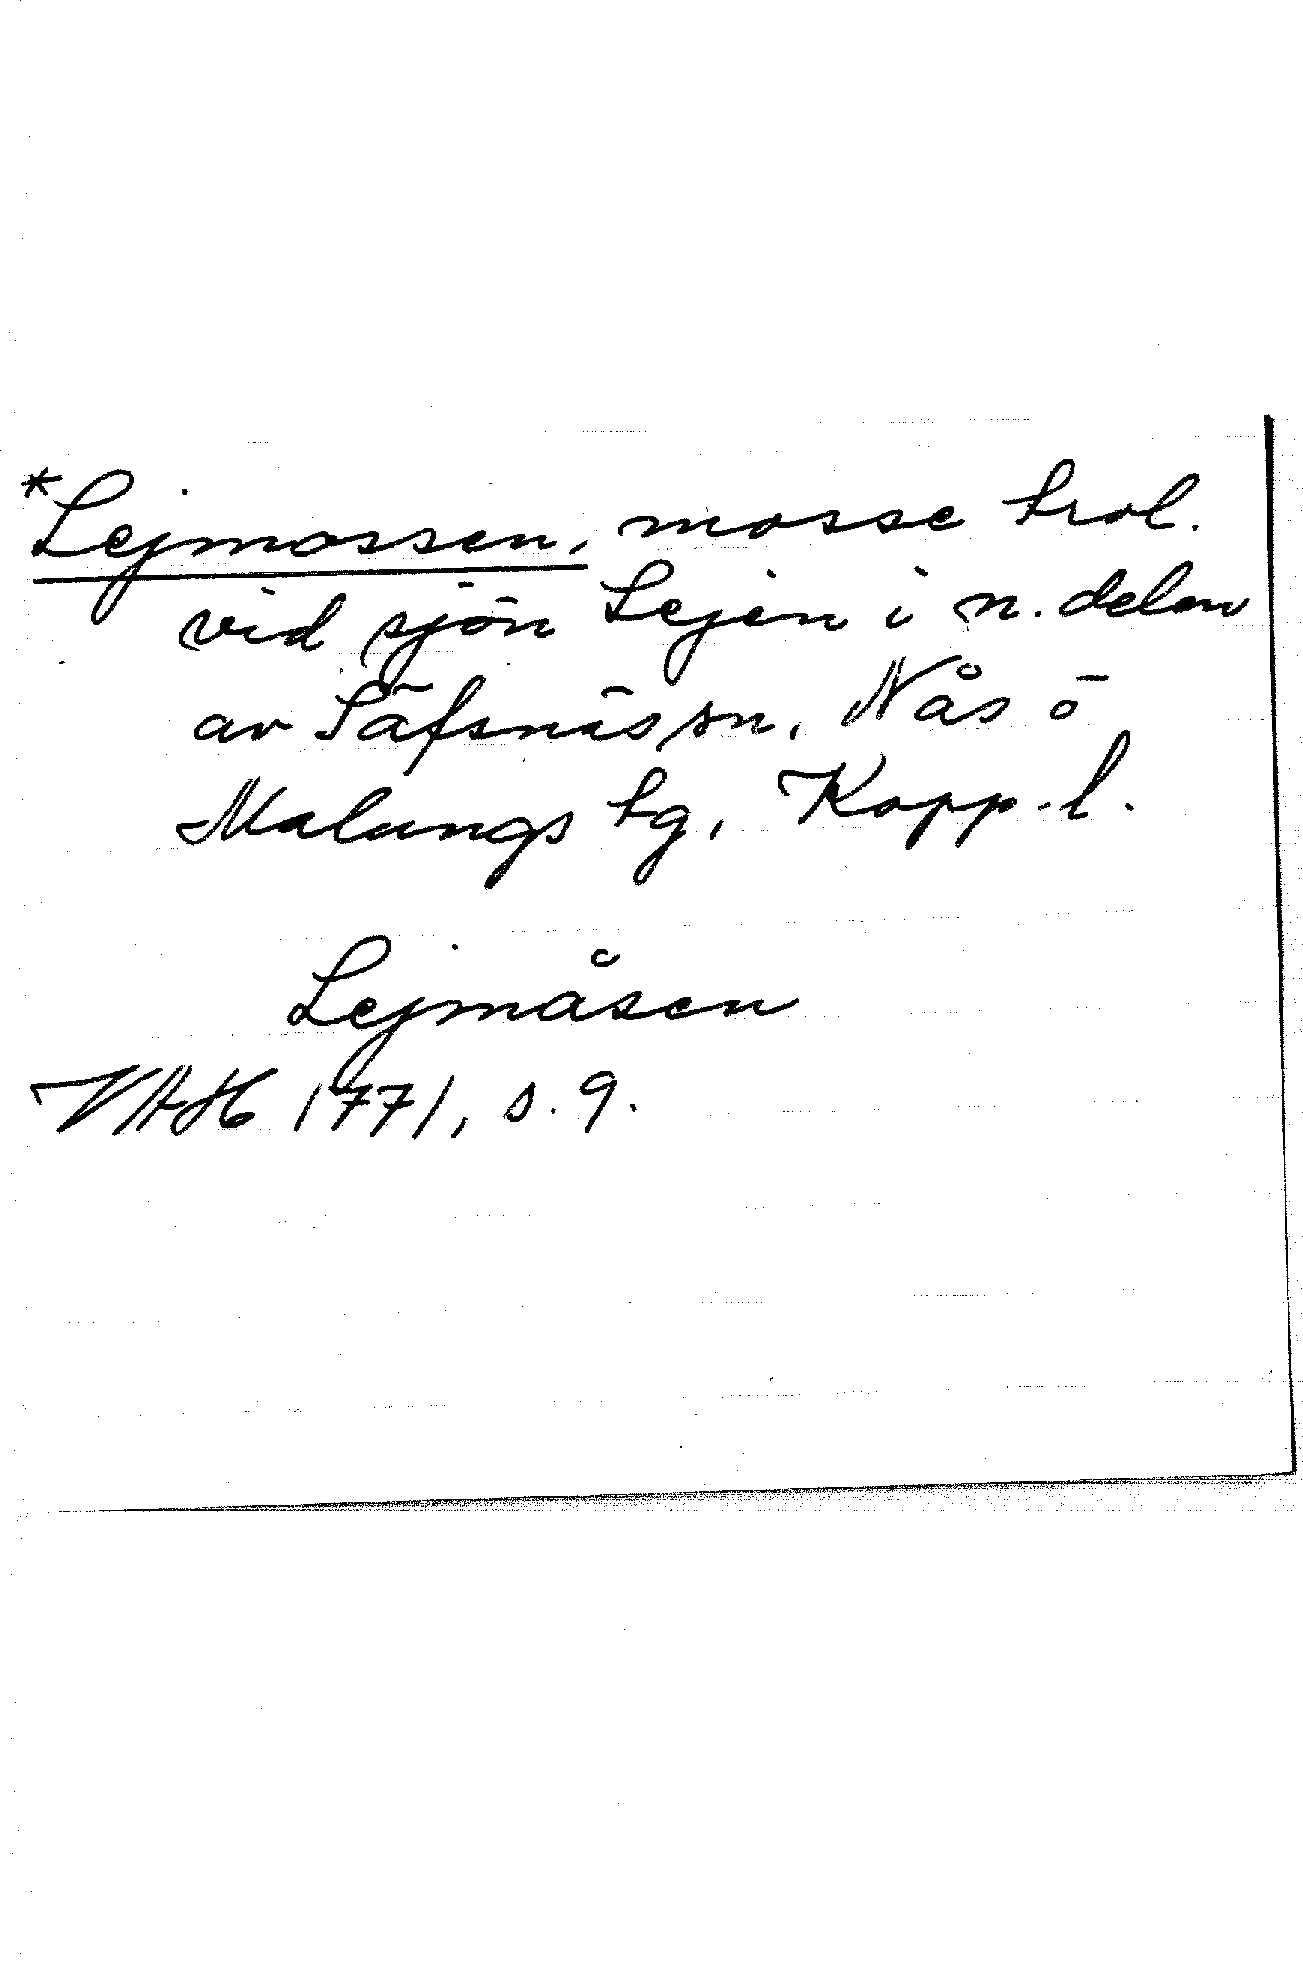 *Lejmossen, mosse trol.
vid sjön Lejen i n. delen
av Säfsnäs sn, Nås o
Malungs tg, Kopp. l.
Lejmåsen
VAH 1771, s. 9.